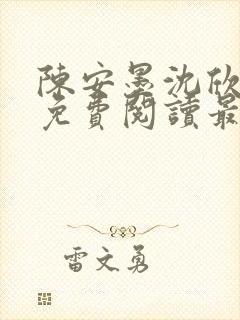 陳安墨沈欣
免費閱讀最
雷文勇